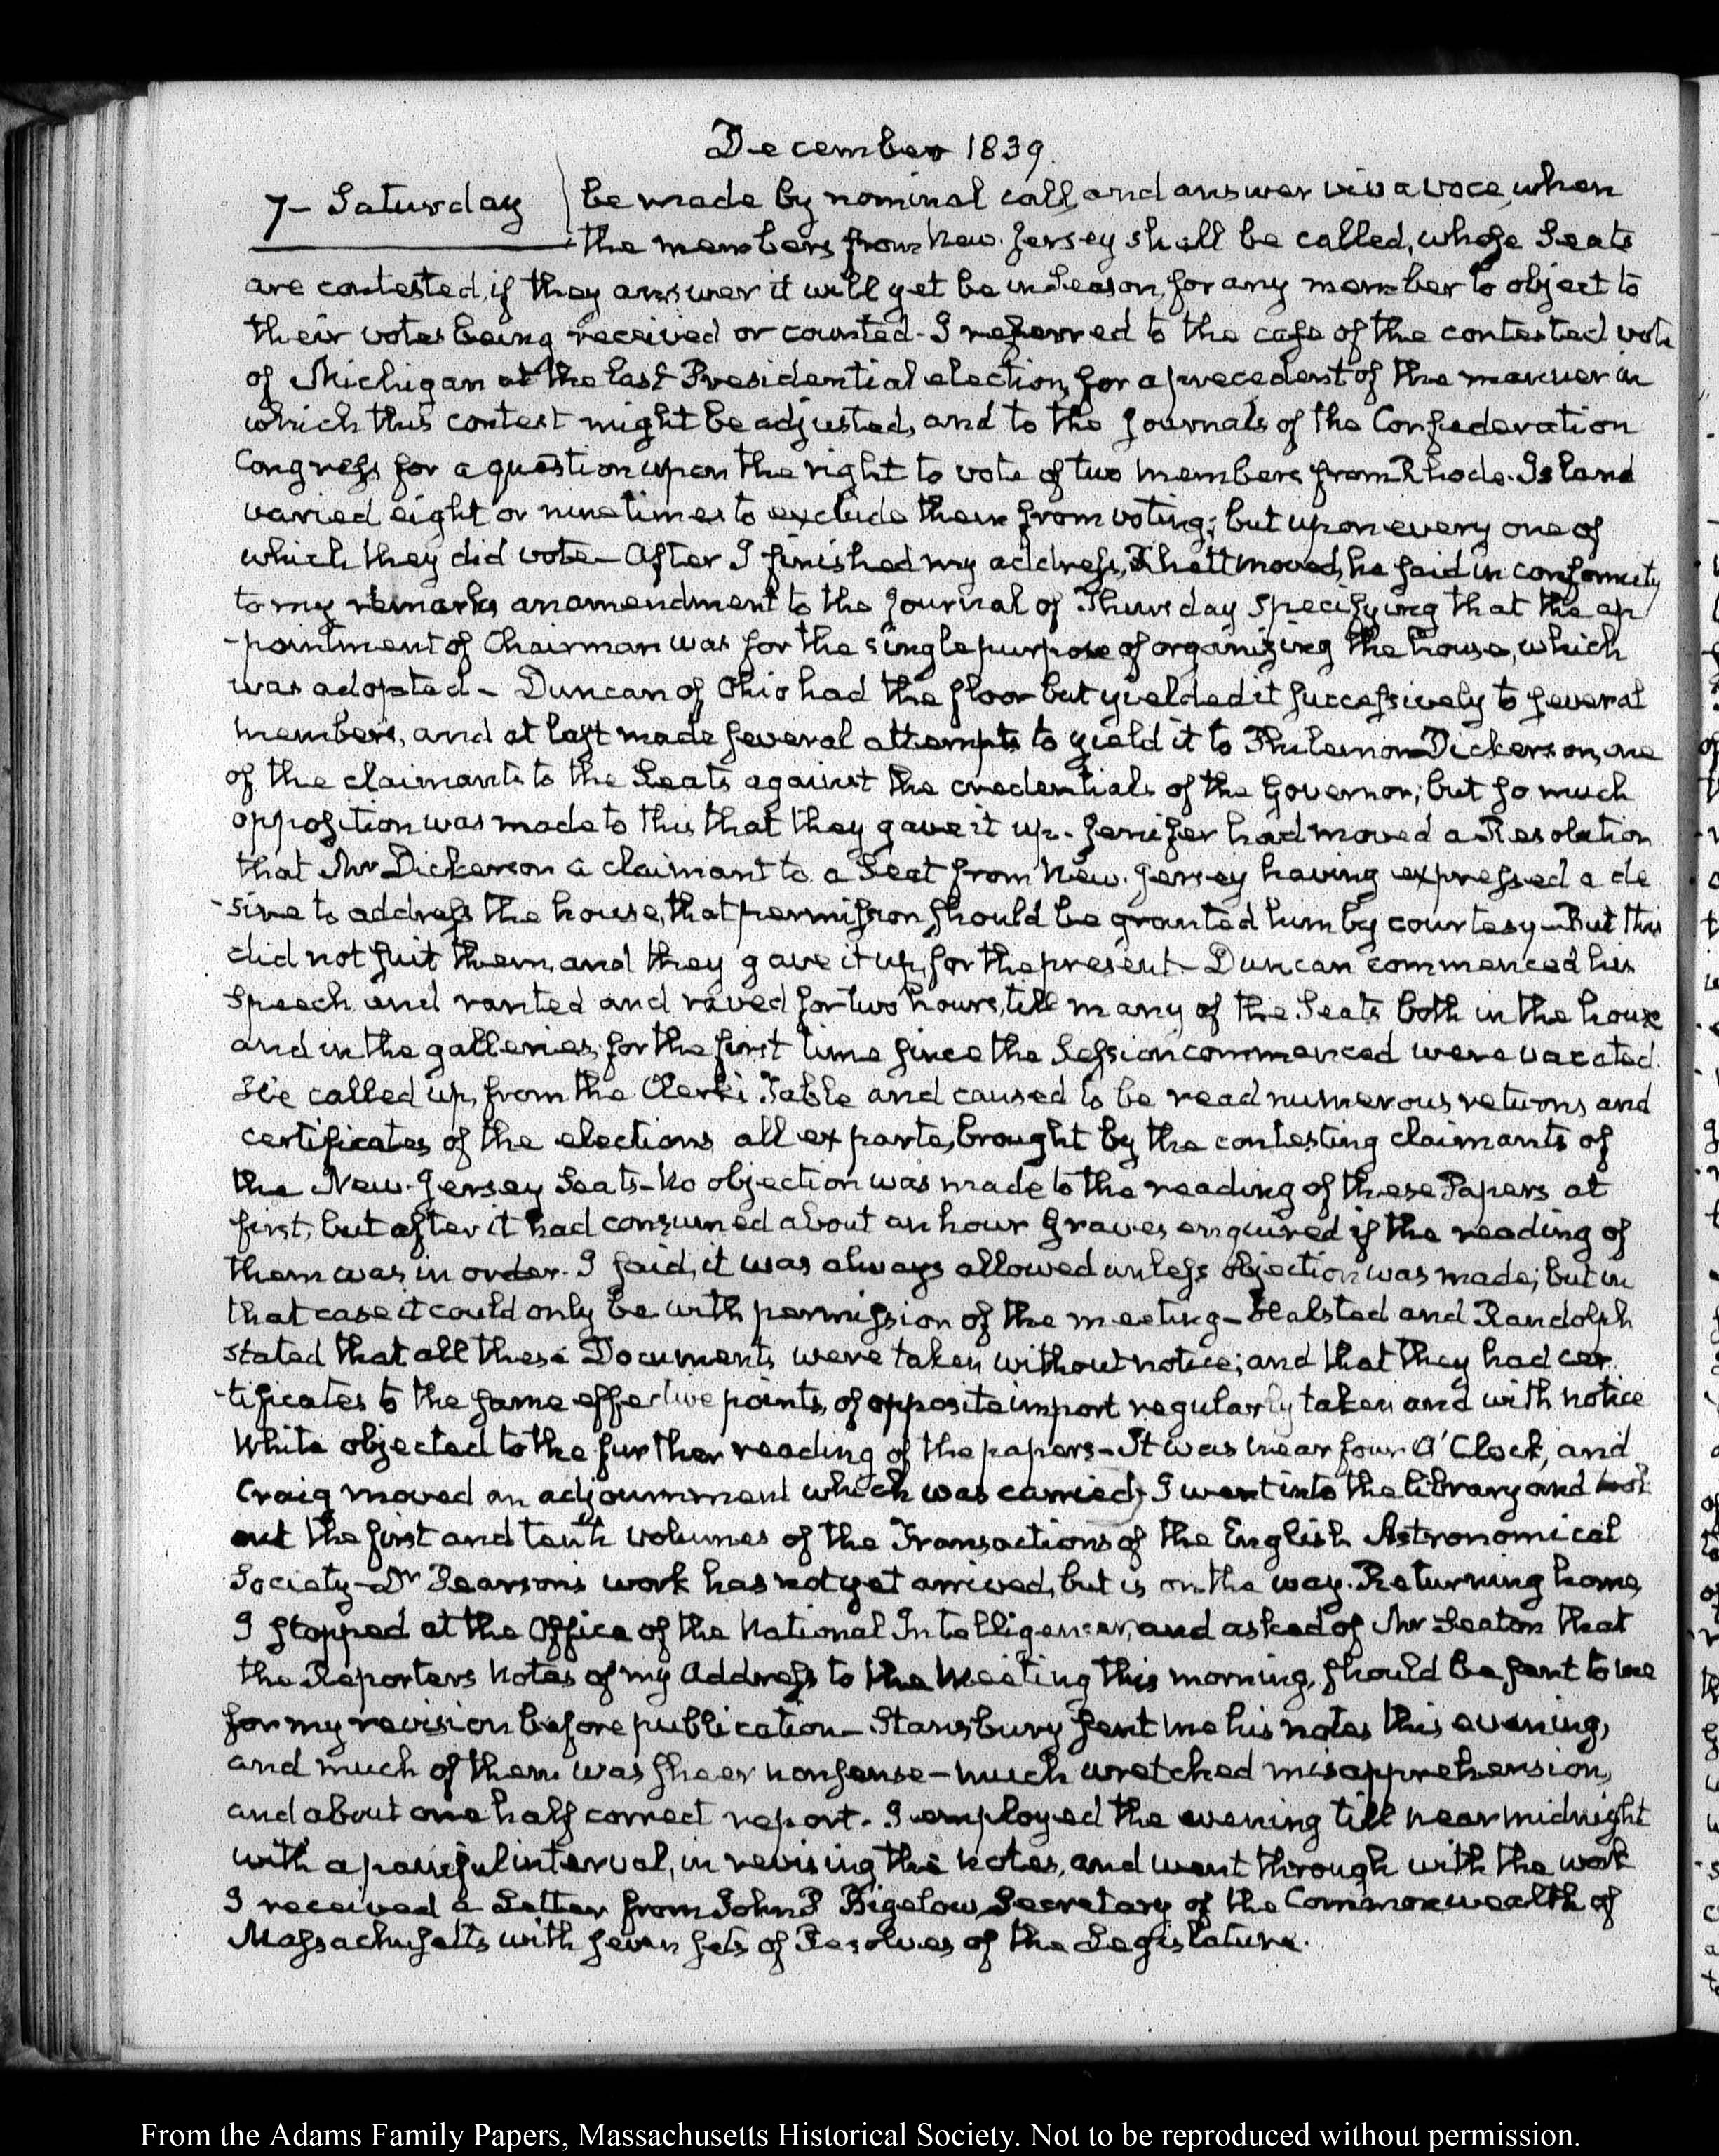 December 1839.
7 – Saturday
be made by nominal call, and answer viva voce, when
the members from New-Jersey shall be called, whose Seats
are contested, if they answer it will yet be in Season, for any member to object to
their votes being received or counted – I referred to the case of the contested vote
of Michigan at the last Presidential election, for a precedent of the manner in
which this contest might be adjusted, and to the Journals of the Confederation
Congress for a question upon the right to vote of two members from Rhode-Island
varied eight or nine times to exclude them from voting; but upon every one of
which they did vote – After I finished my address, Rhett moved, he said in conformity
to my remarks an amendment to the Journal of Thursday specifying that the ap
-pointment of Chairman was for the single purpose of organizing the house, which
was adopted – Duncan of Ohio had the floor but yielded it successively to several
members, and at last made several attempts to yield it to Philemon Dickerson, one
of the claimants to the Seats against the credentials of the Governor; but so much
opposition was made to this that they gave it up. Jenifer had moved a Resolution
that Mr Dickerson a claimant to a Seat from New-Jersey having expressed a de
-sire to address the house, that permission should be granted him by courtesy – But this
did not suit them, and they gave it up, for the present – Duncan commenced his
speech and ranted and raved for two hours, till many of the Seats both in the house
and in the galleries, for the first time since the Session commenced were vacated.
He called up, from the Clerk's Table and caused to be read numerous returns and
certificates of the elections all ex parte, brought by the contesting claimants of
the New-Jersey Seats – No objection was made to the reading of these Papers at
first, but after it had consumed about an hour Graves enquired if the reading of
them was in order. I said, it was always allowed unless objection was made; but in
that case it could only be with permission of the meeting – Halsted and Randolph
stated that all these Documents were taken without notice; and that they had cer
-tificates to the same effective points, of opposite import regularly taken and with notice
White objected to the further reading of the papers – It was near four O'Clock, and
Craig moved an adjournment which was carried, I went into the library and took
out the first and tenth volumes of the Transactions of the English Astronomical
Society – Dr Pearson's work has not yet arrived, but is on the way. Returning home,
I stopped at the Office of the National Intelligencer, and asked of Mr Seaton that
the Reporters Notes of my Address to the Meeting this morning, should be sent to me
for my revision before publication – Stansbury sent me his notes this evening,
and much of them was sheer nonsense – much wretched misapprehension,
and about one half correct report. I employed the evening till near midnight
with a painful interval, in revising the notes, and went through with the work
I received a Letter from John P Bigelow, Secretary of the Commonwealth of
Massachusetts with seven sets of Resolves of the Legislature.
From the Adams Family Papers, Massachusetts Historical Society. Not to be reproduced without permission.